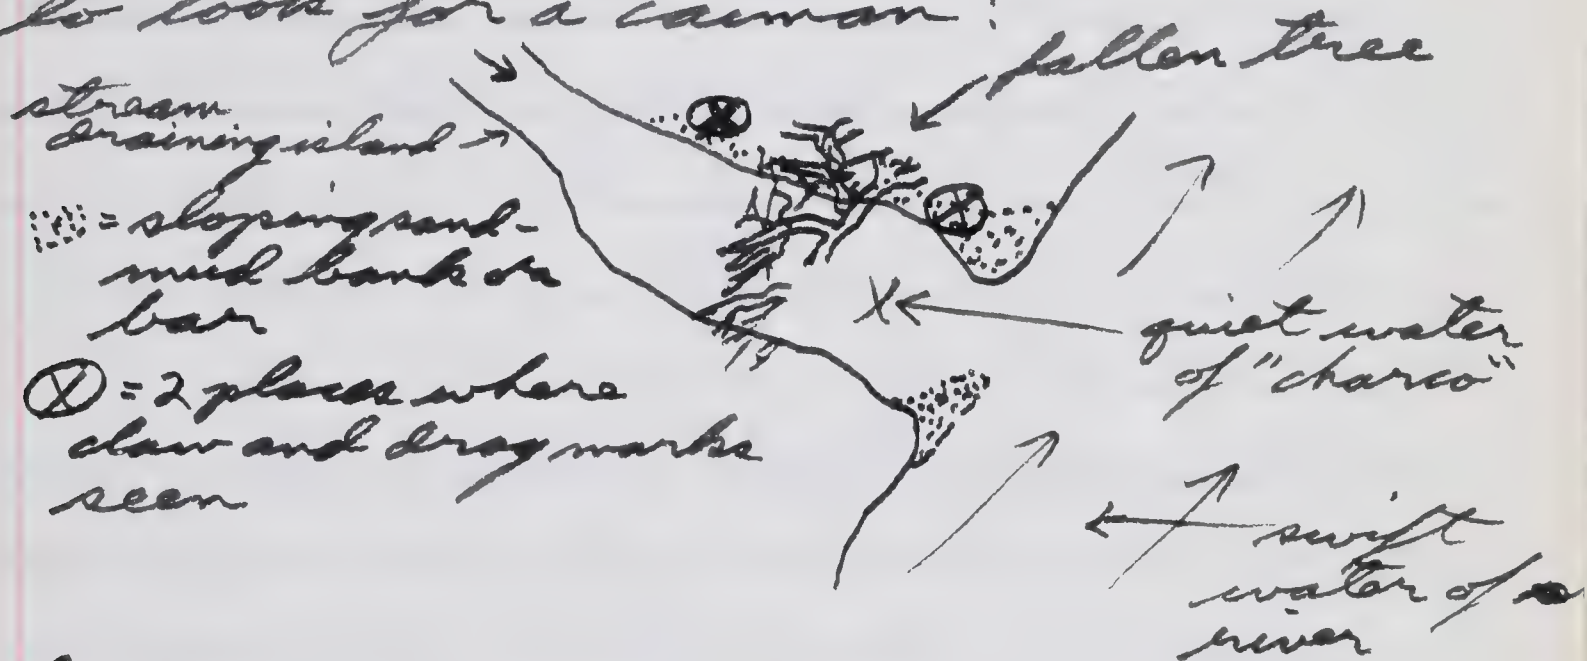 to look for a caiman:
fallen tree
stream
draining island
= sloping sand-
mud bank or
bar
X = 2 places where
claw and drag marks
seen
X
quiet water
of "charco"
swift
water of
river